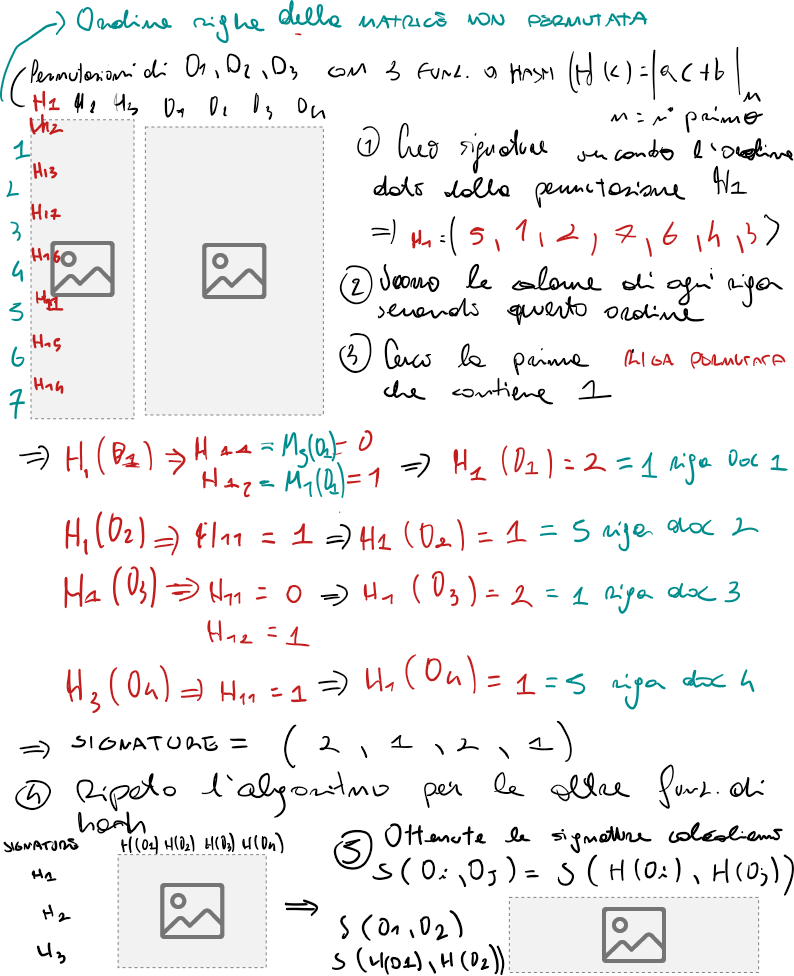 → Ordine righe della MATRICE NON PERMUTATA
Permutazioni di D1, D2, D3 con 3 FUNZ. di HASH (H(c) = |ac+b|n
n = n° primo
H1 H2 H3 D1 D2 D3 D4
1 H12
2 H13
3 H17
4 H16
5 H11
6 H15
7 H14
① Creo signature secondo l'ordine
dato dalla permutazione H1
⇒ H1 = (5, 1, 2, 7, 6, 4, 3)
② Scorro le colonne di ogni riga
secondo questo ordine
③ Cerco la prima RIGA PERMUTATA
che contiene 1
⇒ H1(D1) ⇒ H11 = M5(D1) = 0
H12 = M1(D1) = 1 ⇒ H1(D1) = 2 = 1 riga doc 1
H1(D2) ⇒ H11 = 1 ⇒ H1(D2) = 1 = 5 riga doc 2
H1(D3) ⇒ H11 = 0 ⇒ H1(D3) = 2 = 1 riga doc 3
H12 = 1
H3(D4) ⇒ H11 = 1 ⇒ H1(D4) = 1 = 5 riga doc 4
⇒ SIGNATURE = (2, 1, 2, 1)
④ Ripeto l'algoritmo per le altre funz. di
hash
SIGNATURE H(D1) H(D2) H(D3) H(D4)
H1
H2
H3
⑤ Ottenute le signature calcoliamo
S(Di, Dj) = S(H(Di), H(Dj))
⇒ S(D1, D2)
S(H(D1), H(D2))